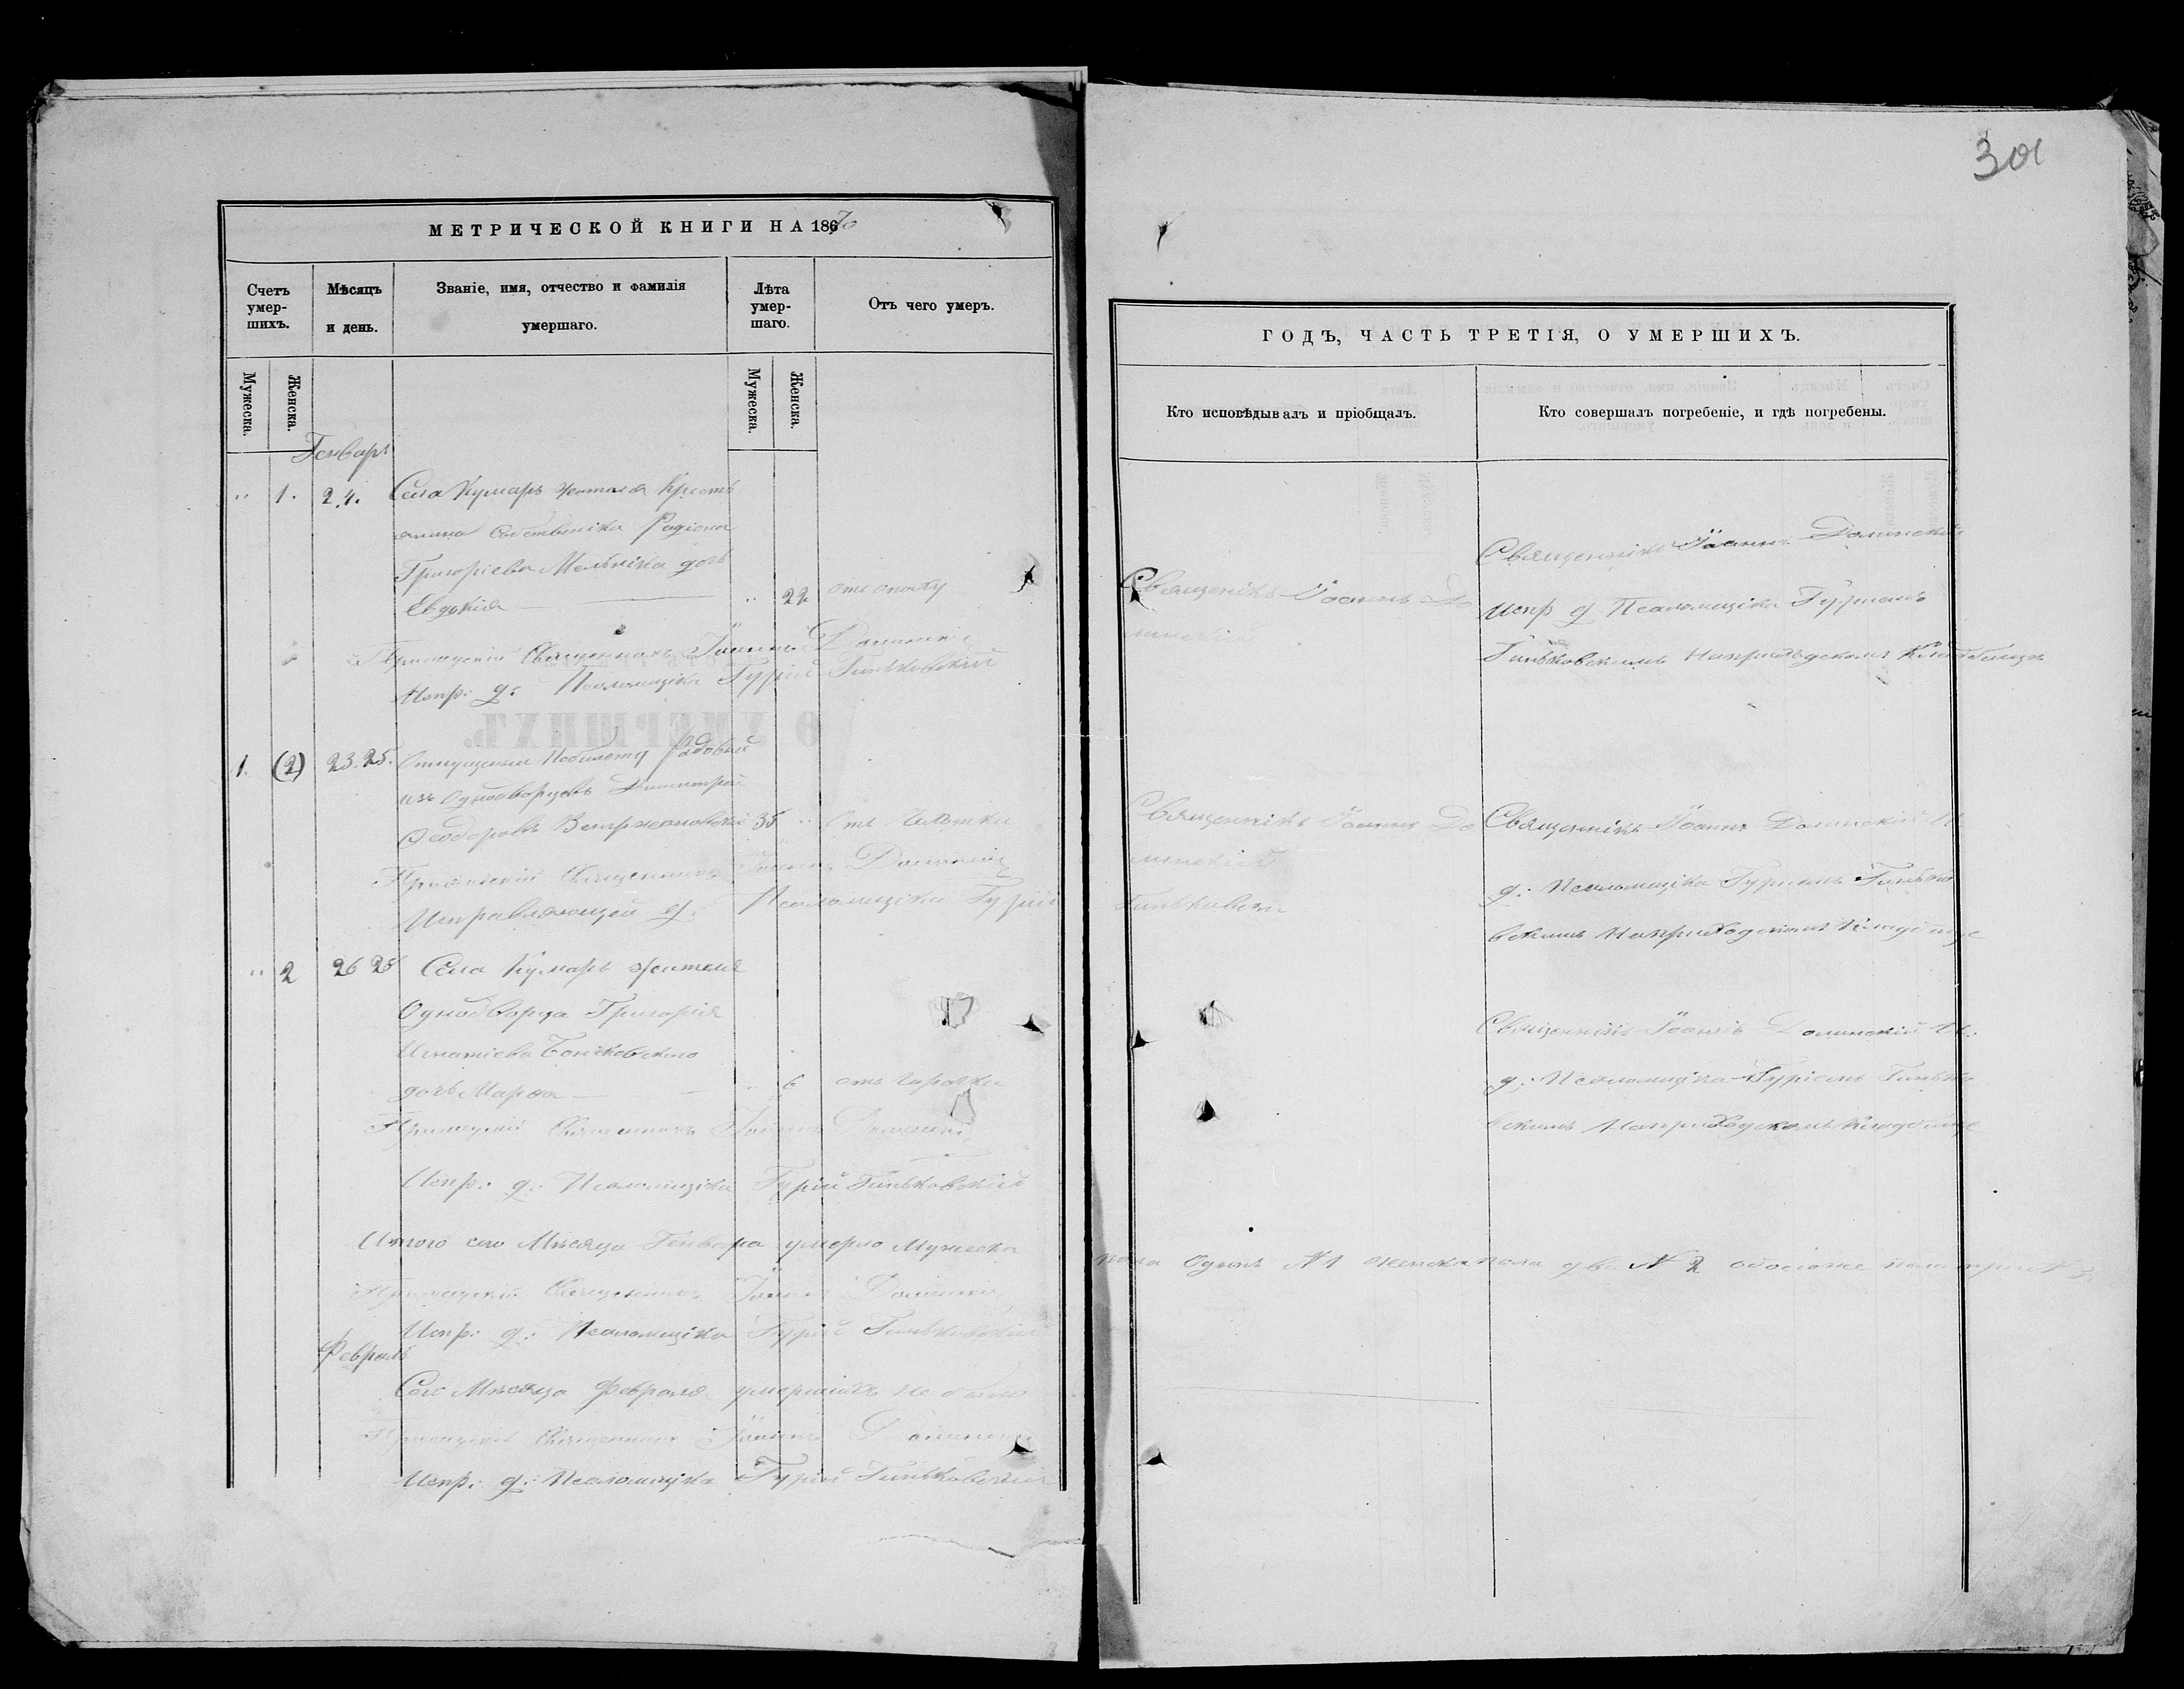 МЕТРИЧЕСКОЙ КНИГИ НА 1870
Счетъ умер-шихъ.
Мѣсяцъ и день.
Званіе, имя, отчество и фамилія умершаго.
Лѣта умер-шаго.
Отъ чего умеръ.
Мужеска.
Женска.
Мужеска.
Женска.
Генварь
" 1. 2.4. Села Кумаръ жителя Кресть
янина Собственика Радіона
Григоріева Мельника дочь
Евдокія — " 22
Приходскій Священникъ Іоаннъ Долинскій
Испр: д: Псаломщіка Гурій Гиньковскій
1. (2) 23. 25. Рядовый
изъ Однодворцевъ Димитрій
Ѳеодоровъ 35 " Отъ
Приходскій Священникъ Іоаннъ Долинскій
Исправляющій д. Псаломщіка Гурій
" 2 26 28 Села Кумаръ жителя
Однодворца Григорія
Игнатіева
дочь Марѳа — " 6 отъ горячки
Приходскій Священникъ Іоаннъ Долинскій
Испр: д: Псаломщіка Гурій Гиньковскій
Итого сего Мѣсяца Генвара умерло Мужеска
Приходскій Священникъ Іоаннъ Долинскій
Испр: д: Псаломщіка Гурій Гиньковскій
Февраль
Сего Мѣсяца Февраля умершихъ не было
Приходскій Священникъ Іоаннъ Долинскій
Испр: д: Псаломщіка Гурій Гиньковскій
301
ГОДЪ, ЧАСТЬ ТРЕТІЯ, О УМЕРШИХЪ.
Кто исповѣдывалъ и пріобщалъ.
Кто совершалъ погребеніе, и гдѣ погребены.
Священікъ Іоаннъ До
линскій
Священнікъ Іоаннъ Долинскій
Испр д Псаломщіка Гуріемъ
Гиньковскимъ
Священнікъ Іоаннъ До
линскій
Гиньковскій
Священнікъ Іоаннъ Долинскій И.
д: Псаломщіка Гуріемъ Гинько
вскимъ Наприходскомъ Кладбище
Священнікъ Іоаннъ Долинскій И.
д: Псаломщіка Гуріемъ Гинько
вскимъ Наприходскомъ Кладбище
пола Одинъ №1 женска пола два №2 обоего же пола три №3